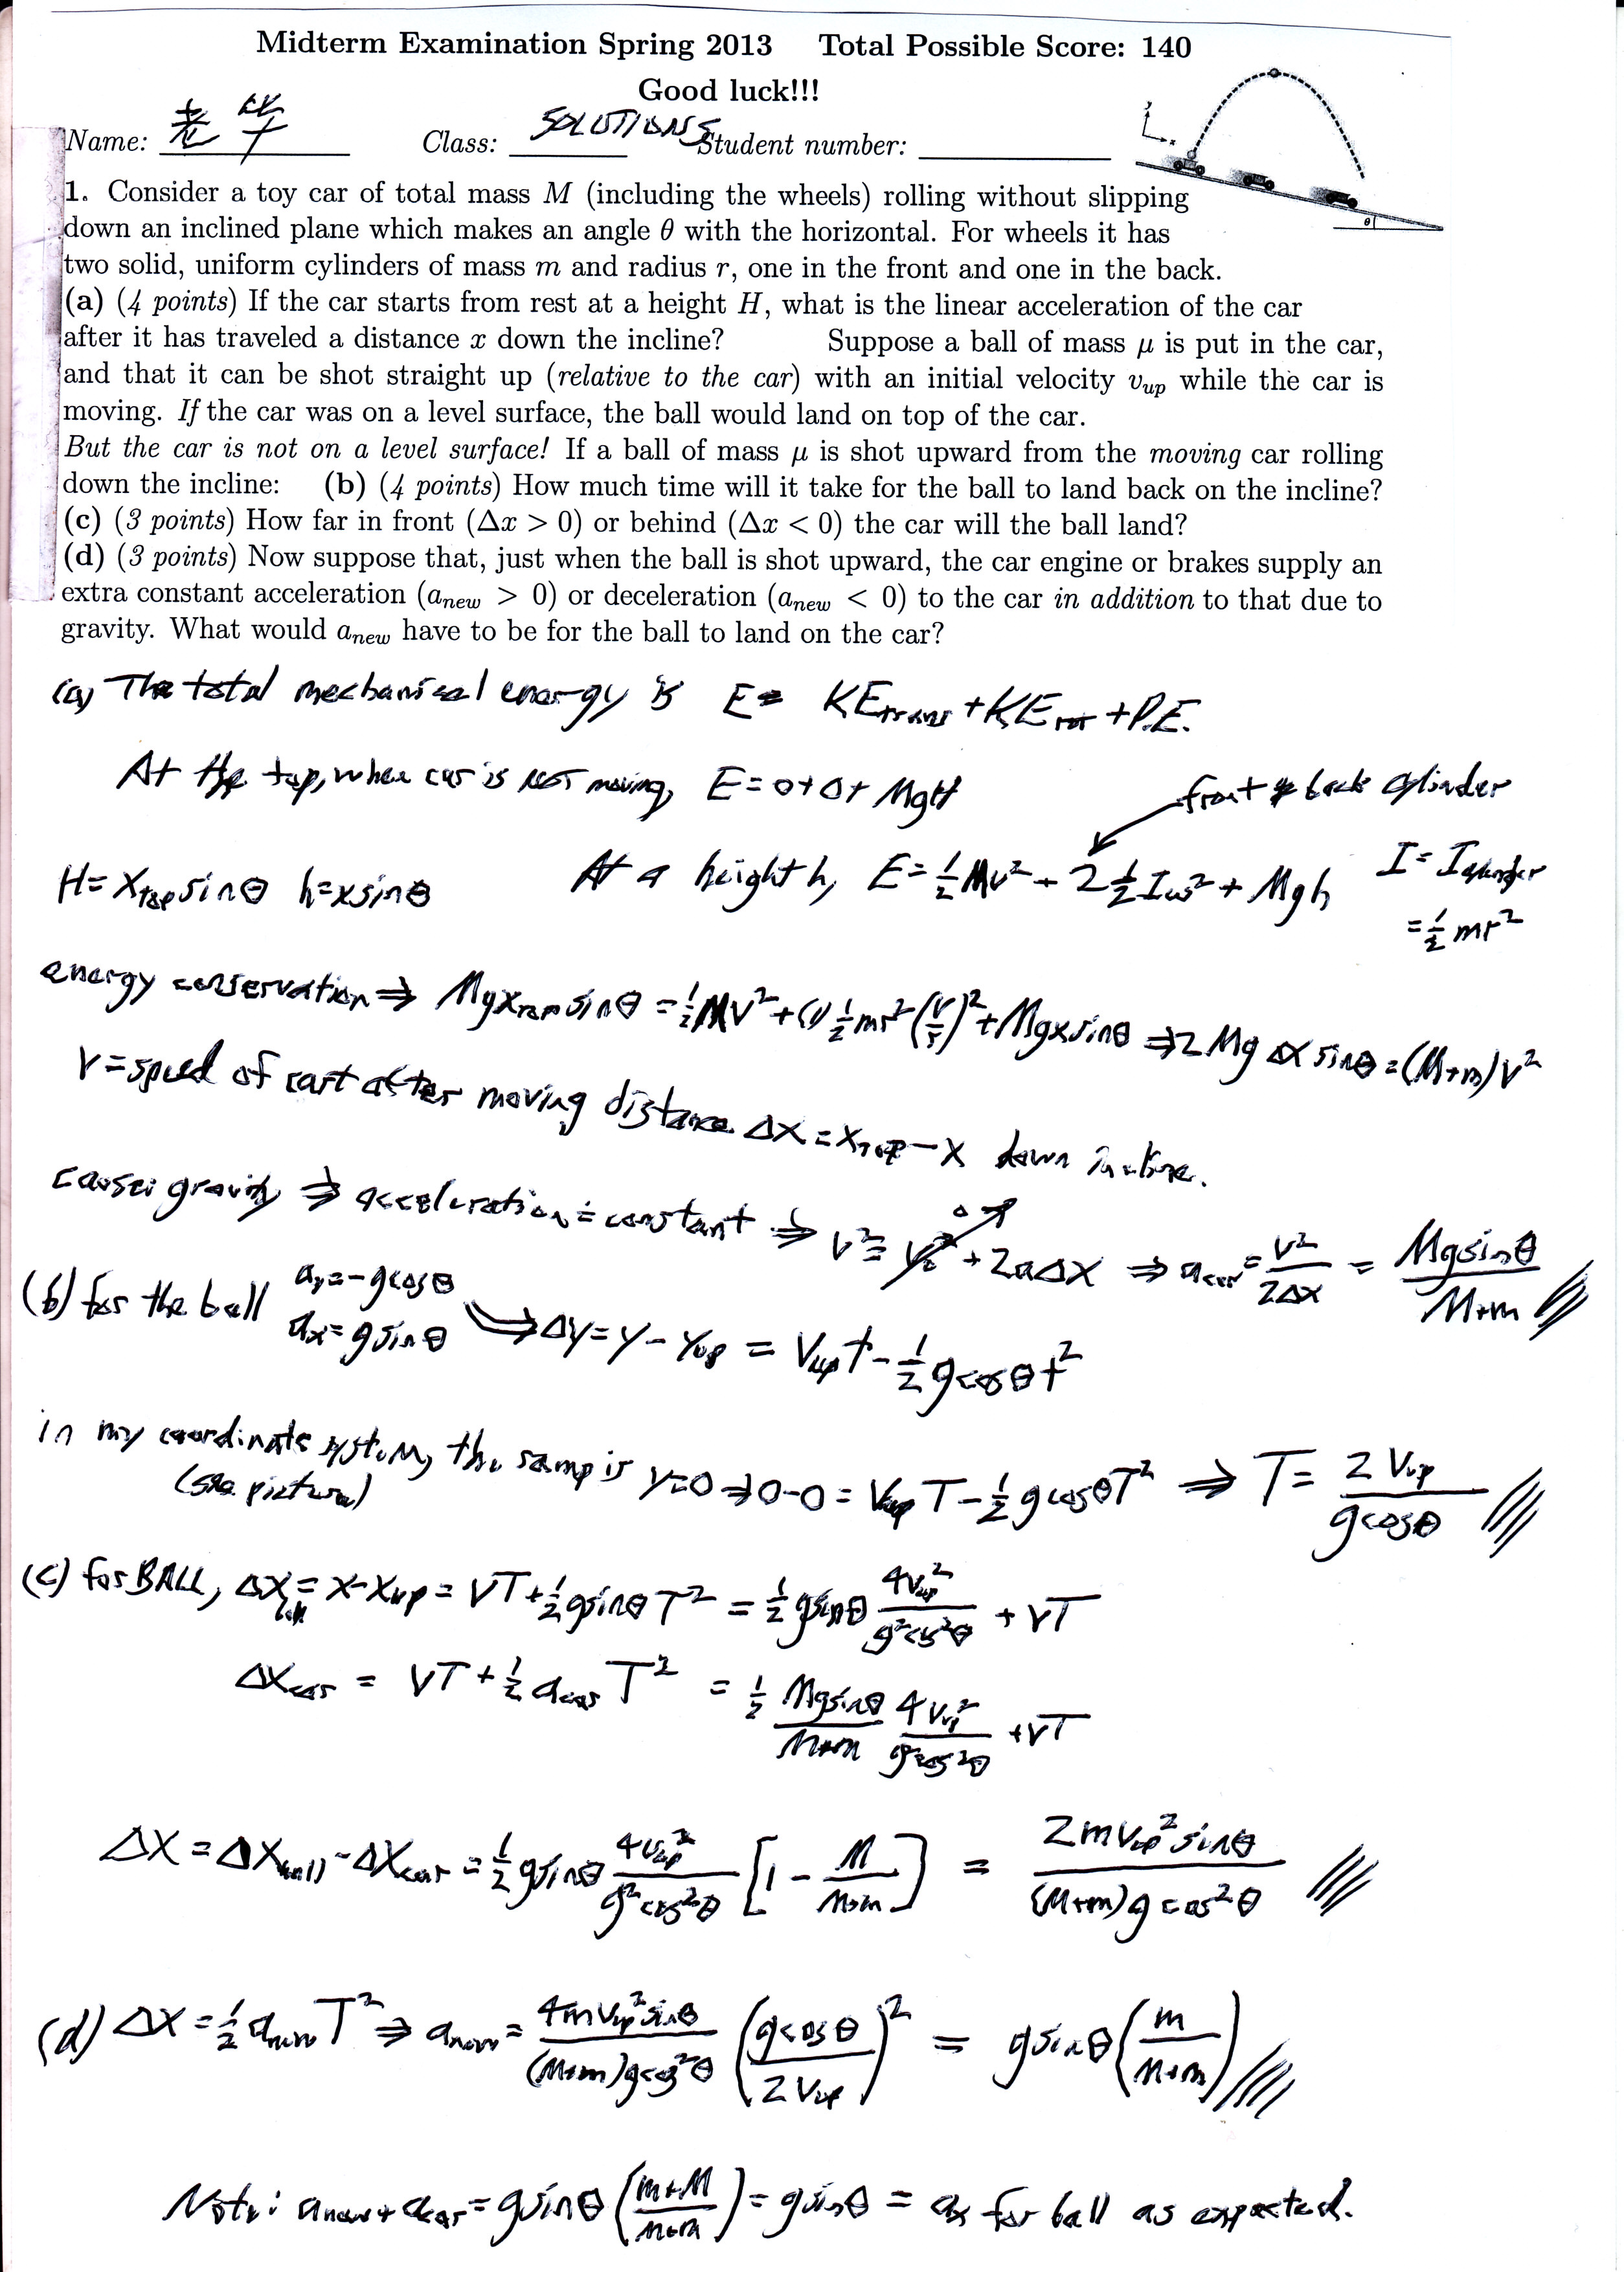 Midterm Examination Spring 2013 Total Possible Score: 140
Good luck!!!
Name: 老毕 Class: SOLUTIONS Student number:
1. Consider a toy car of total mass M (including the wheels) rolling without slipping
down an inclined plane which makes an angle θ with the horizontal. For wheels it has
two solid, uniform cylinders of mass m and radius r, one in the front and one in the back.
(a) (4 points) If the car starts from rest at a height H, what is the linear acceleration of the car
after it has traveled a distance x down the incline? Suppose a ball of mass μ is put in the car,
and that it can be shot straight up (relative to the car) with an initial velocity v_up while the car is
moving. If the car was on a level surface, the ball would land on top of the car.
But the car is not on a level surface! If a ball of mass μ is shot upward from the moving car rolling
down the incline: (b) (4 points) How much time will it take for the ball to land back on the incline?
(c) (3 points) How far in front (Δx > 0) or behind (Δx < 0) the car will the ball land?
(d) (3 points) Now suppose that, just when the ball is shot upward, the car engine or brakes supply an
extra constant acceleration (a_new > 0) or deceleration (a_new < 0) to the car in addition to that due to
gravity. What would a_new have to be for the ball to land on the car?
y x θ
(a) The total mechanical energy is E = KE_trans + KE_rot + P.E.
At the top, when car is NOT moving, E = 0 + 0 + MgH
front & back cylinder
H = x_top sinθ h = x sinθ At a height h, E = ½Mv² + 2 ½Iω² + Mgh I = I_cylinder
= ½ mr²
energy conservation ⇒ Mg x_TOP sinθ = ½Mv² + (1) ½mr² (v/r)² + Mgx sinθ ⇒ 2Mg Δx sinθ = (M+m)v²
v = speed of cart after moving distance Δx = x_TOP − x down incline.
gravity ⇒ acceleration = constant ⇒ v² = v₀² 0 + 2aΔx ⇒ a_car = v²/2Δx = Mg sinθ/(M+m)
(b) for the ball a_y = −g cosθ
a_x = g sinθ ⇒ Δy = y − y_up = v_up t − ½ g cosθ t²
in my coordinate system, the ramp is y=0 ⇒ 0−0 = v_up T − ½ g cosθ T² ⇒ T = 2v_up/(g cosθ)
(see picture)
(c) for BALL, Δx_ball = x − x_up = vT + ½ g sinθ T² = ½ g sinθ 4v_up²/(g² cos²θ) + vT
Δx_car = vT + ½ a_car T² = ½ Mg sinθ/(M+m) 4v_up²/(g² cos²θ) + vT
Δx = Δx_ball − Δx_car = ½ g sinθ 4v_up²/(g² cos²θ) [1 − M/(M+m)] = 2m v_up² sinθ/((M+m) g cos²θ)
(d) Δx = ½ a_new T² ⇒ a_new = 4m v_up² sinθ/((M+m) g cos²θ) (g cosθ/2v_up)² = g sinθ (m/(M+m))
Note: a_new + a_car = g sinθ ((m+M)/(M+m)) = g sinθ = a_x for ball as expected.